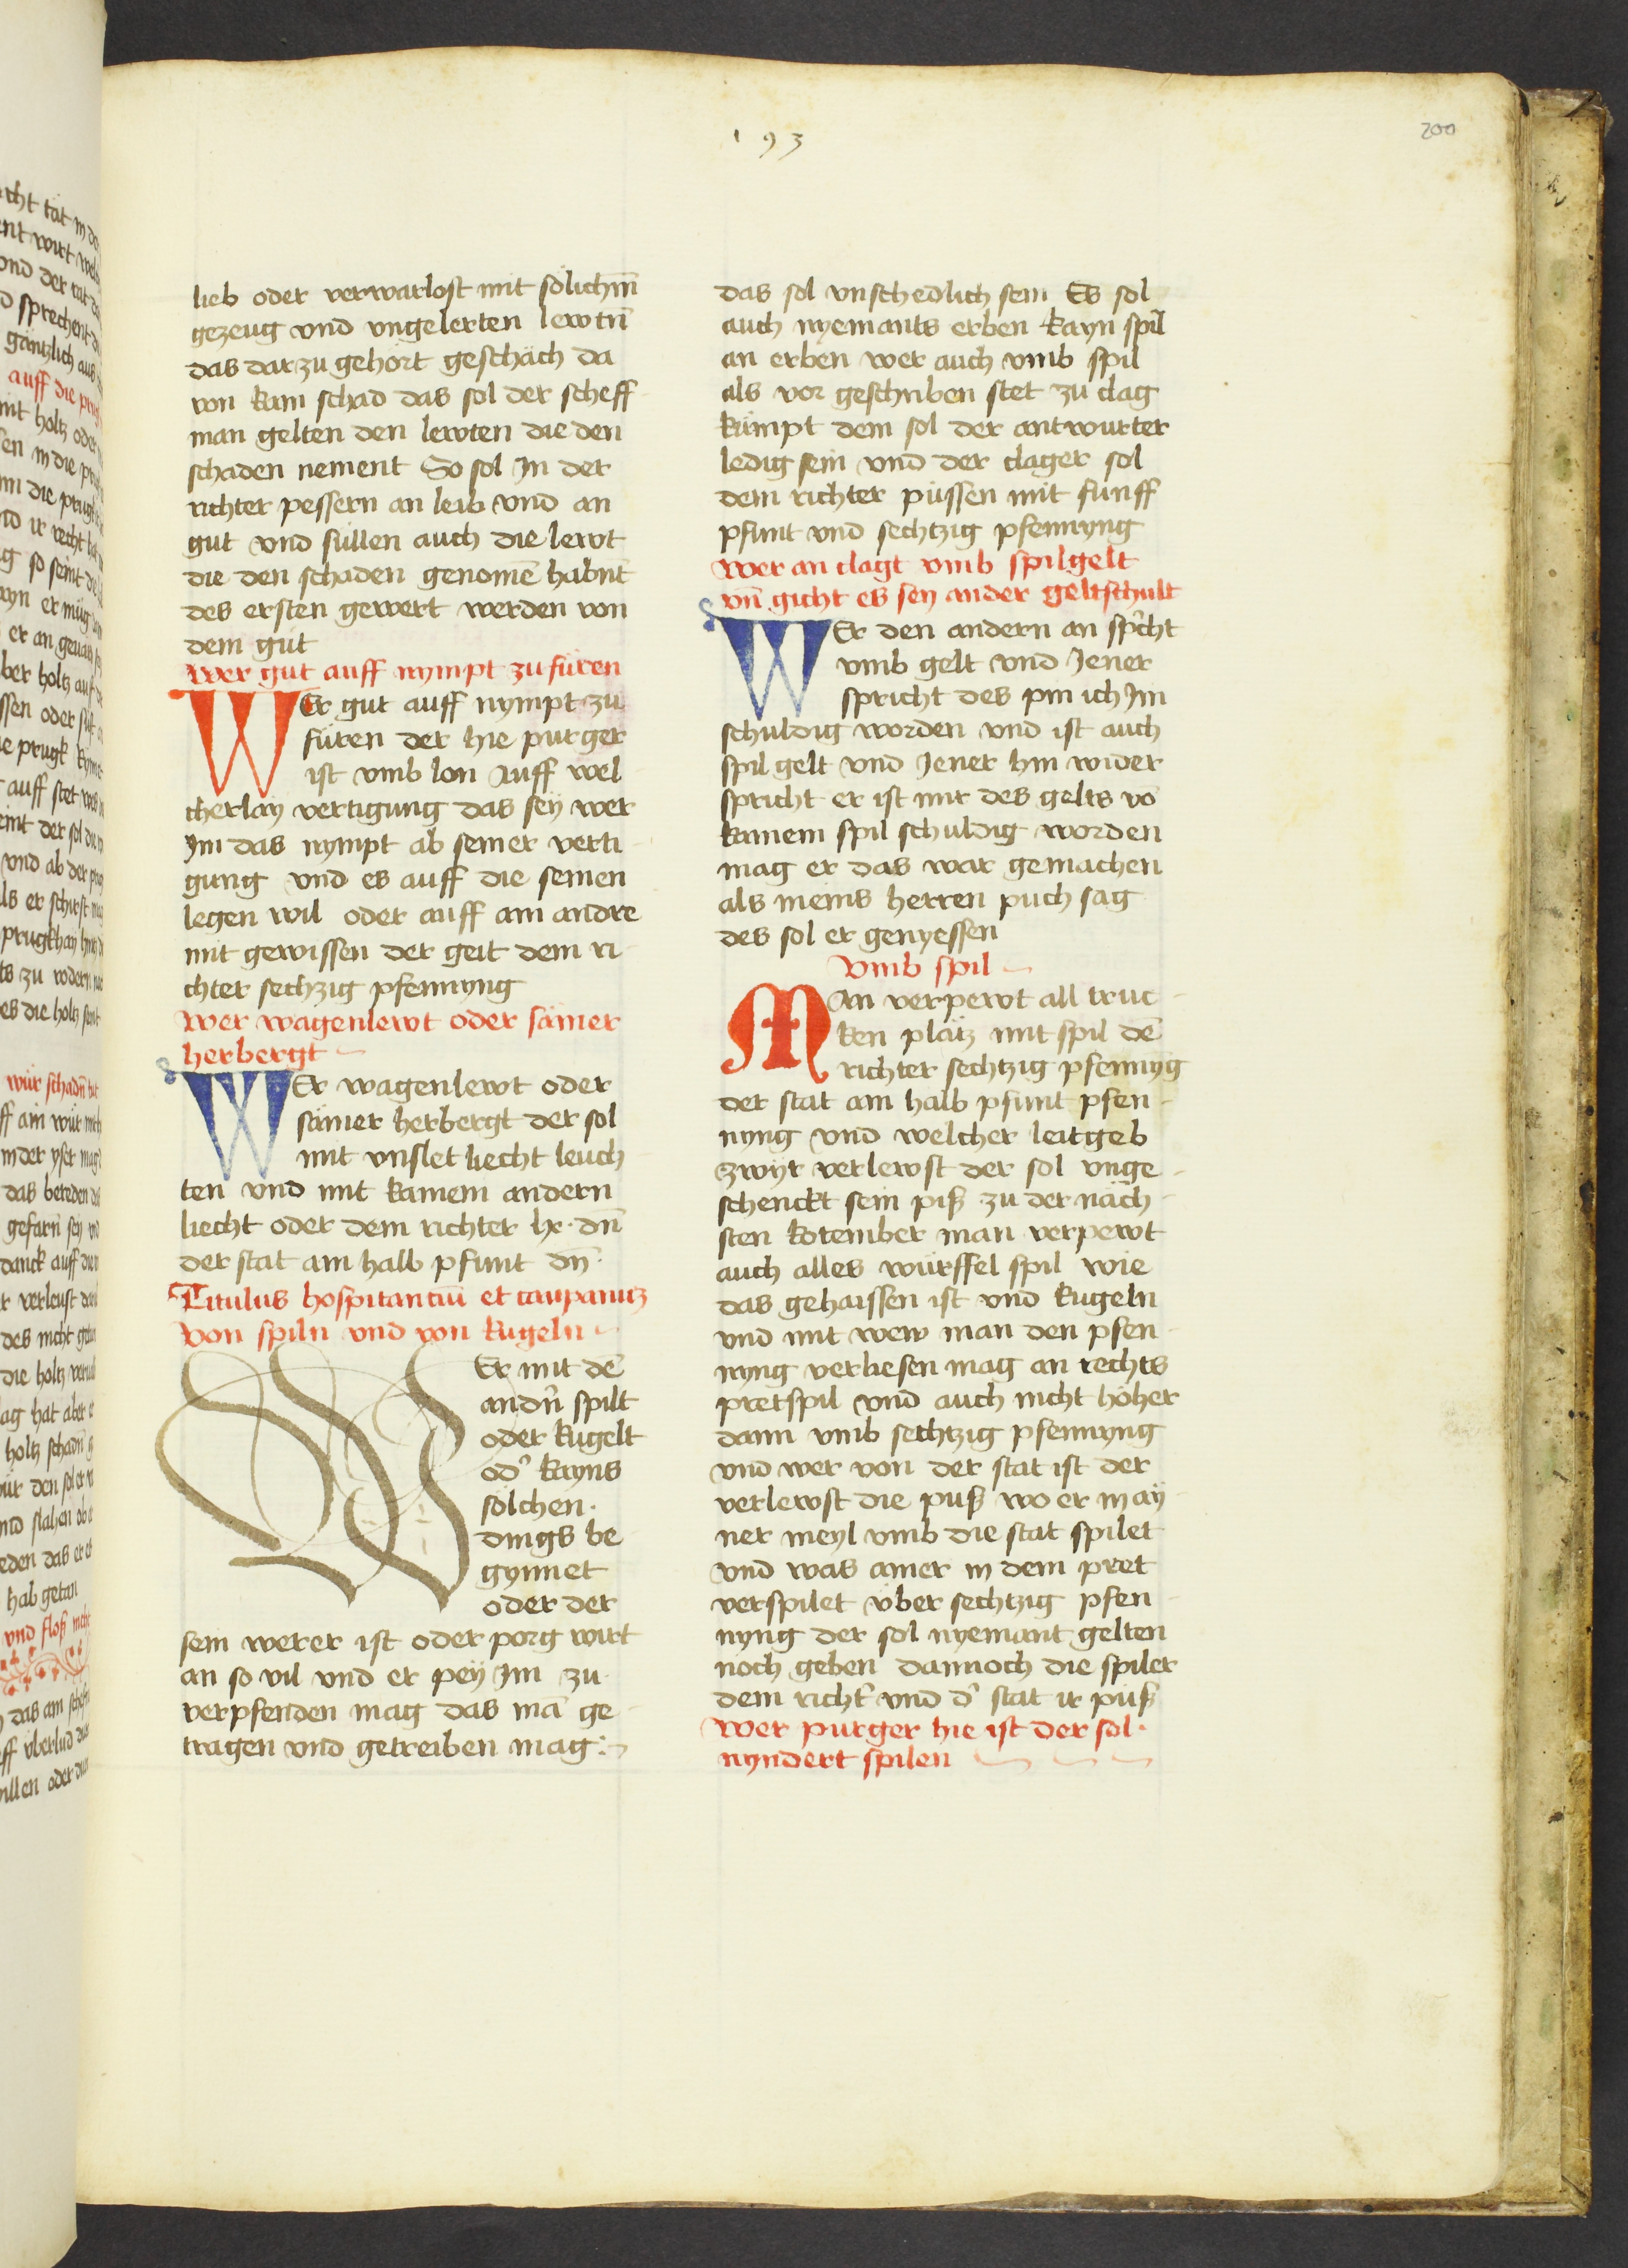 193
200
lieb oder verwarlost mit sölichm̄
gezeug vnd vngelerten lewtn̄
das darzu gehort geschäch da
von kam schad das sol der scheff
man gelten den lewten die den
schaden nement So sol Jn der
richter pessern an leib vnd an
gut vnd süllen auch die lewt
die den schaden genomē habnt
des ersten gewert werden von
dem gut
Wer gut auff nympt zu füren
WEr gut auff nympt zu
füren der hie purger
ist vmb lon Auff wel
cherlay vertigung das sey wer
Jm das nympt ab seiner verti
gung vnd es auff die seinen
legen wil oder auff ain andre
mit gewissen der geit dem ri
chter sechzig pfennyng
Wer wagenlewt oder sämer
herbergt
WEr wagenlewt oder
sämer herbergt der sol
mit vnslet liecht leuch
ten vnd mit kainem andern
liecht oder dem richter lx · dn̄
der stat ain halb pfunt dn̄ ·
Titulus hospitanciū et caupanūz
Von spiln vnd von kugeln
WEr mit dē
andn̄ spilt
oder kugelt
od' kayns
sölchen ·
dings be
gynnet
oder der
sein werer ist oder porg wirt
an so vil vnd er pey Jm zu
verpfenden mag das mā ge
tragen vnd getreiben mag :
das sol vnschedlich sein Es sol
auch nyemants erben kayn spil
an erben wer auch vmb spil
als vor geschriben stet zu clag
kümpt dem sol der antwurter
ledig sein vnd der clager sol
dem richter püssen mit fünff
pfunt vnd sechtzig pfennyng
Wer an clagt vmb spilgelt
vn̄ gicht es sey ander geltschult
WEr den andern an sp'cht
vmb gelt vnd Jener
spricht des pin ich Jm
schuldig worden vnd ist auch
spil gelt vnd Jener hin wider
spricht er ist mir des gelts vō
kainem spil schuldig worden
mag er das war gemachen
als meins herren puch sag
des sol er genyessen
Vmb spil
MAn verpewt all truc
ken plätz mit spil dē
richter sechtzig pfennyg
der stat ain halb pfunt pfen
nyng vnd welcher leitgeb
zwyr verlewst der sol vnge
schenckt sein piß zu der näch
sten kotember man verpewt
auch alles würffel spil wie
das gehaissen ist vnd kugeln
vnd mit wew man den pfen
nyng verliesen mag an rechts
pretspil vnd auch nicht höher
dann vmb sechtzig pfennyng
vnd wer von der stat ist der
verlewst die puß wo er in ay
ner meyl vmb die stat spilet
vnd was ainer in dem pret
verspilet vber sechtzig pfen
nyng der sol nyemant gelten
noch geben dannoch die spiler
dem richt' vnd d' stat ir puß
Wer purger hie ist der sol ·
nyndert spilen